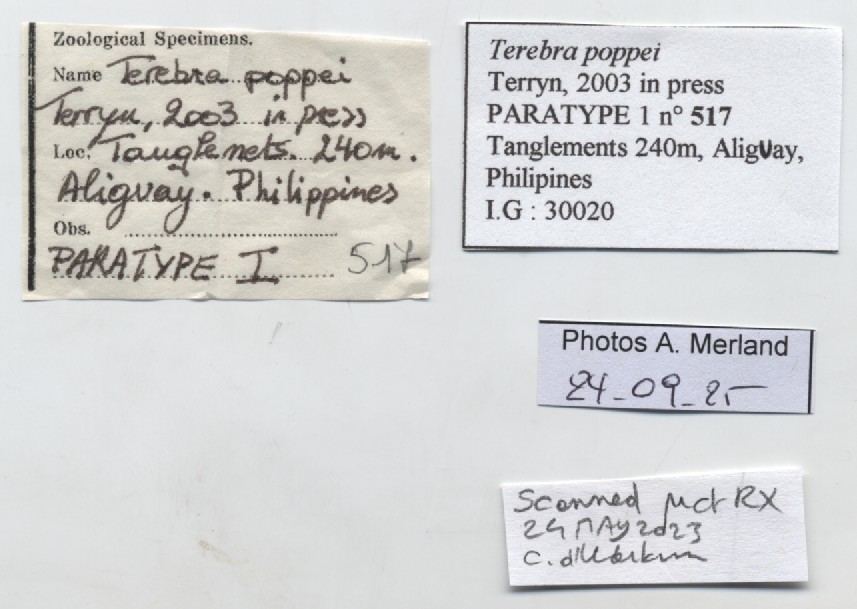 Zoological Specimens.
Name Terebra poppei
Terryn, 2003 in press
Loc. Tangle nets. 240m.
Aliguay. Philippines
Obs.
PARATYPE I 517
Terebra poppei
Terryn, 2003 in press
PARATYPE 1 n° 517
Tanglements 240m, Aliguay,
Philipines
I.G : 30020
Photos A. Merland
24_09_25
Scanned µct RX
24 MAY 2023
C.